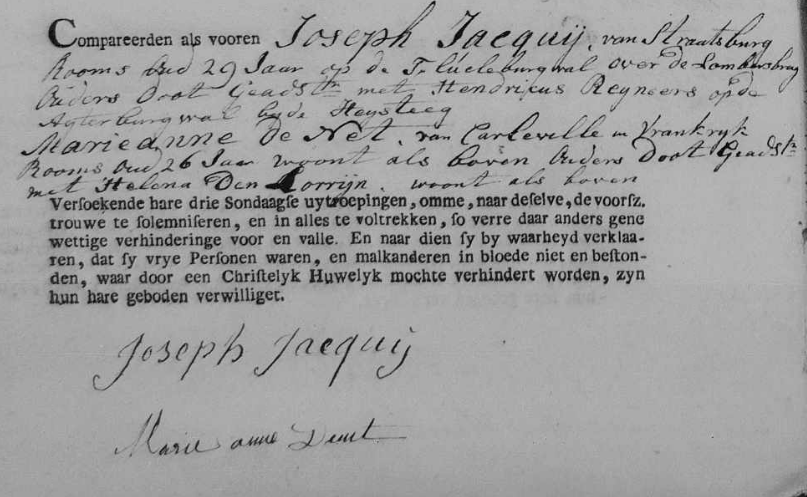 Compareerden als vooren Joseph Jacquij, van Straatsburg
Rooms Oud 29 Jaar op de Fluweleburgwal over de Lombersbrug
Ouders Doot Geadstr: met Hendricus Reyneers op de
Agterburgwal by de Heysteeg
Marieanne De Net. van Carleville in Vrankryk
Rooms Oud 26 Jaar woont als boven Ouders Doot Geadstr:
met Helena Den Lorrijn. woont als boven
Verſoekende hare drie Sondaagſe uytroepingen, omme, naar deſelve, de voorſz.
trouwe te ſolemniſeren, en in alles te voltrekken, ſo verre daar anders gene
wettige verhinderinge voor en valle. En naar dien ſy by waarheyd verklaa-
ren, dat ſy vrye Perſonen waren, en malkanderen in bloede niet en beſton-
den, waar door een Chriſtelyk Huwelyk mochte verhindert worden, zyn
hun hare geboden verwilliget.
Joseph Jacquij
Marie anne